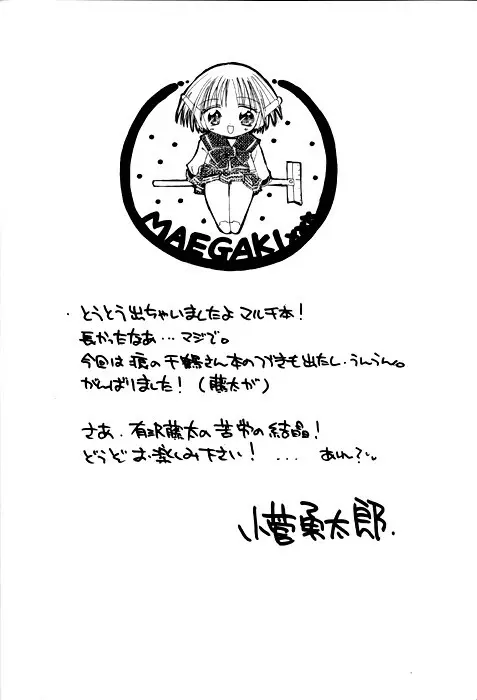 MAEGAKI
・とうとう出ちゃいましたよ マルチ本！
長かったなあ… マジで。
今回は 痕の 千鶴さん本のつづきも出たし、うんうん。
がんばりました！（藤太が）
さあ、有沢藤太の 苦労の 結晶！
どうぞ お楽しみ下さい！ ... あれ？
小菅勇太郎.